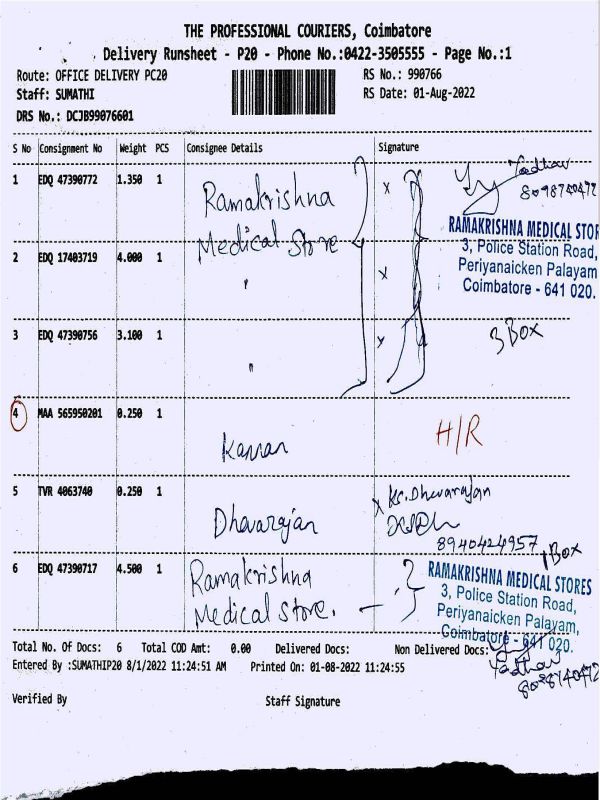 THE PROFESSIONAL COURIERS, Coimbatore
Delivery Runsheet - P20 - Phone No.:0422-3505555 - Page No.:1
Route: OFFICE DELIVERY PC20 RS No.: 990766
Staff: SUMATHI RS Date: 01-Aug-2022
DRS No.: DCJB99076601
S No Consignment No Weight PCS Consignee Details Signature
1 EDQ 47390772 1.350 1 Ramakrishna x
8098740472
Medical Store
RAMAKRISHNA MEDICAL STOR
3, Police Station Road,
2 EDQ 17403719 4.000 1 " x
Periyanaicken Palayam
Coimbatore - 641 020.
3 EDQ 47390756 3.100 1 "
3 Box
4 MAA 565950201 0.250 1 Kannan H/R
5 TVR 4063740 0.250 1 Dhevarajan x Ks. Dhevarajan
8940424957
1 Box
6 EDQ 47390717 4.500 1 Ramakrishna
Medical Store.
RAMAKRISHNA MEDICAL STORES
3, Police Station Road,
Periyanaicken Palayam,
Coimbatore - 641 020.
Total No. Of Docs: 6 Total COD Amt: 0.00 Delivered Docs: Non Delivered Docs:
Entered By :SUMATHIP20 8/1/2022 11:24:51 AM Printed On: 01-08-2022 11:24:55
8098740472
Verified By Staff Signature